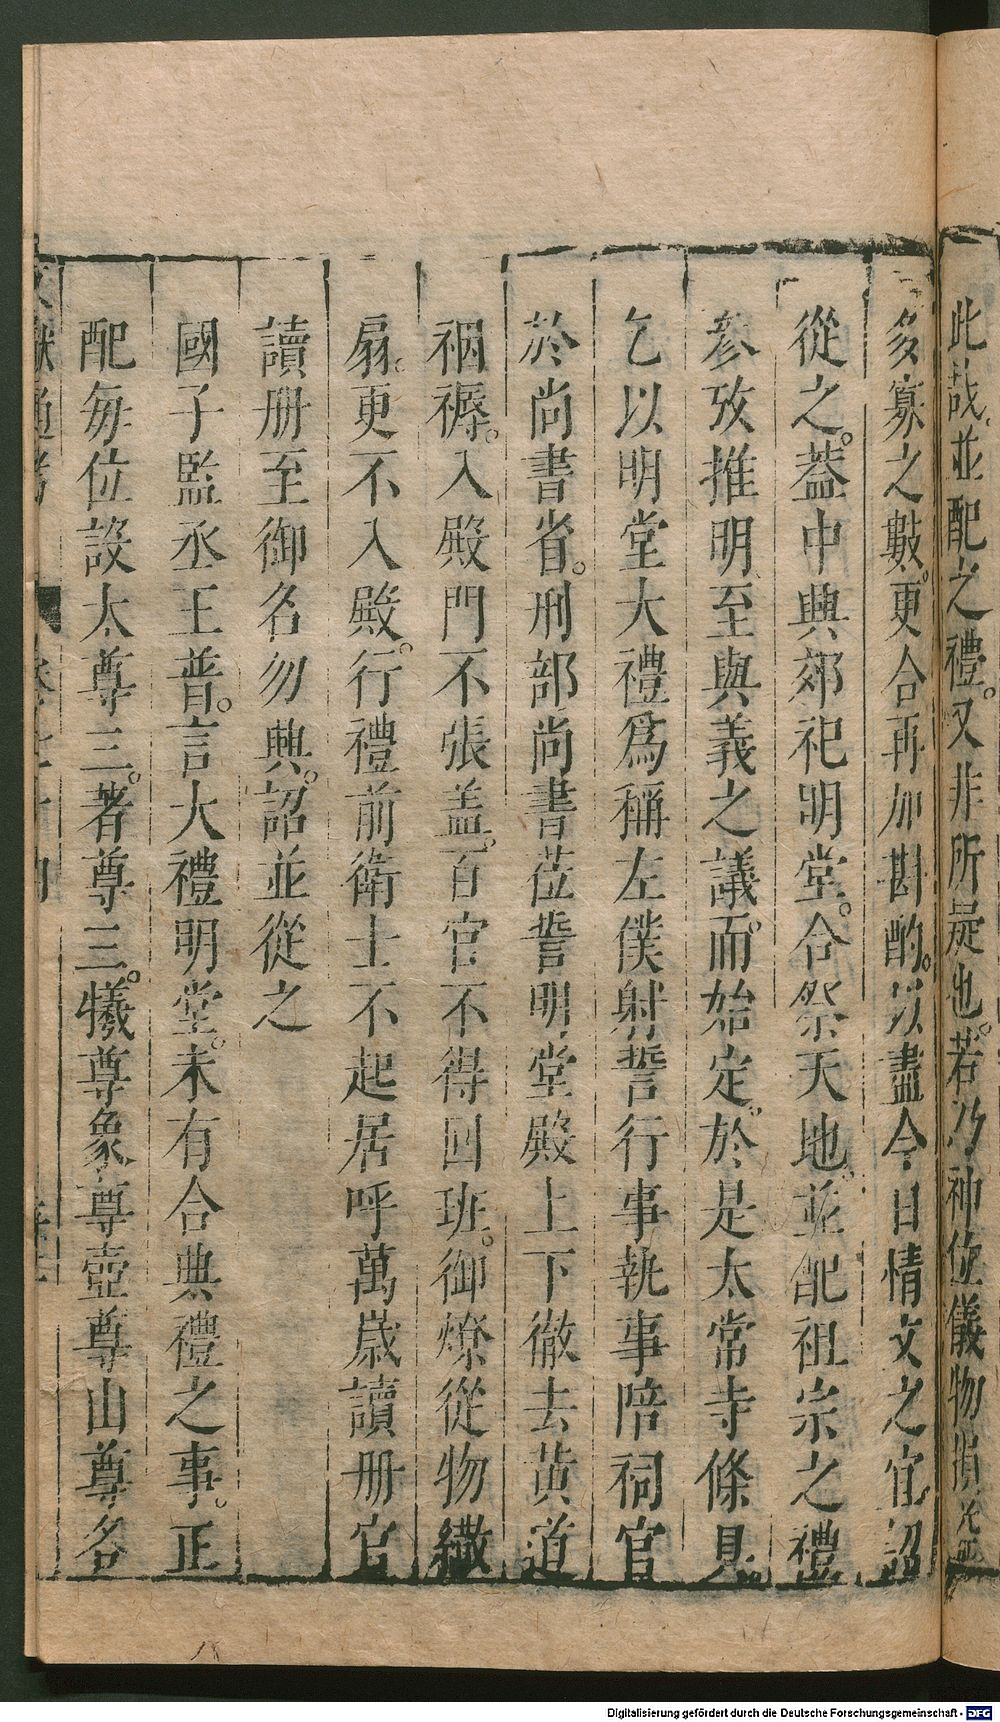 此哉並配之禮又非所疑也若乃神位儀物損益
多寡之數更合再加斟酌以盡今日情文之宜詔
從之蓋中興郊祀明堂合祭天地並配祖宗之禮
參攷推明至與義之議而始定於是太常寺條具
乞以明堂大禮爲稱左僕射誓行事執事陪祠官
於尚書省刑部尚書莅誓明堂殿上下徹去黃道
裀褥入殿門不張盖百官不得回班御燎從物繖
扇更不入殿行禮前衛士不起居呼萬歲讀册官
讀册至御名勿興詔並從之
國子監丞王普言大禮明堂未有合典禮之事正
配每位設太尊三著尊三犧尊象尊壺尊山尊各
文獻通考
Digitalisierung gefördert durch die Deutsche Forschungsgemeinschaft - DFG